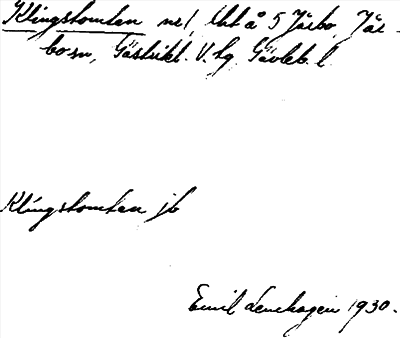 Klingstomten nr 1, tkt å 5 Järbo, Jär-
bo sn, Gästrikl. V. hg. Gävleb. l.
Klingstomten jb
Emil Lenehagen 1930.